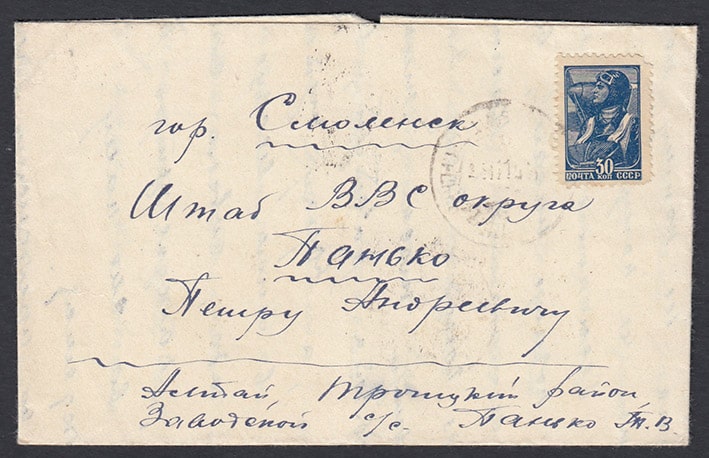 гор. Смоленск
Штаб ВВС округа
Панько
Петру Андреевичу
Алтай, Троицкий район,
Заводской с/с. Панько В.
30
ПОЧТА КОП СССР